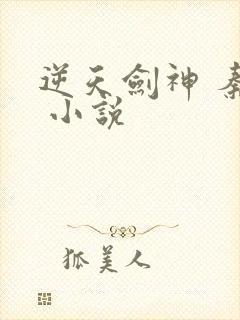 逆天劍神
小説
狐美人